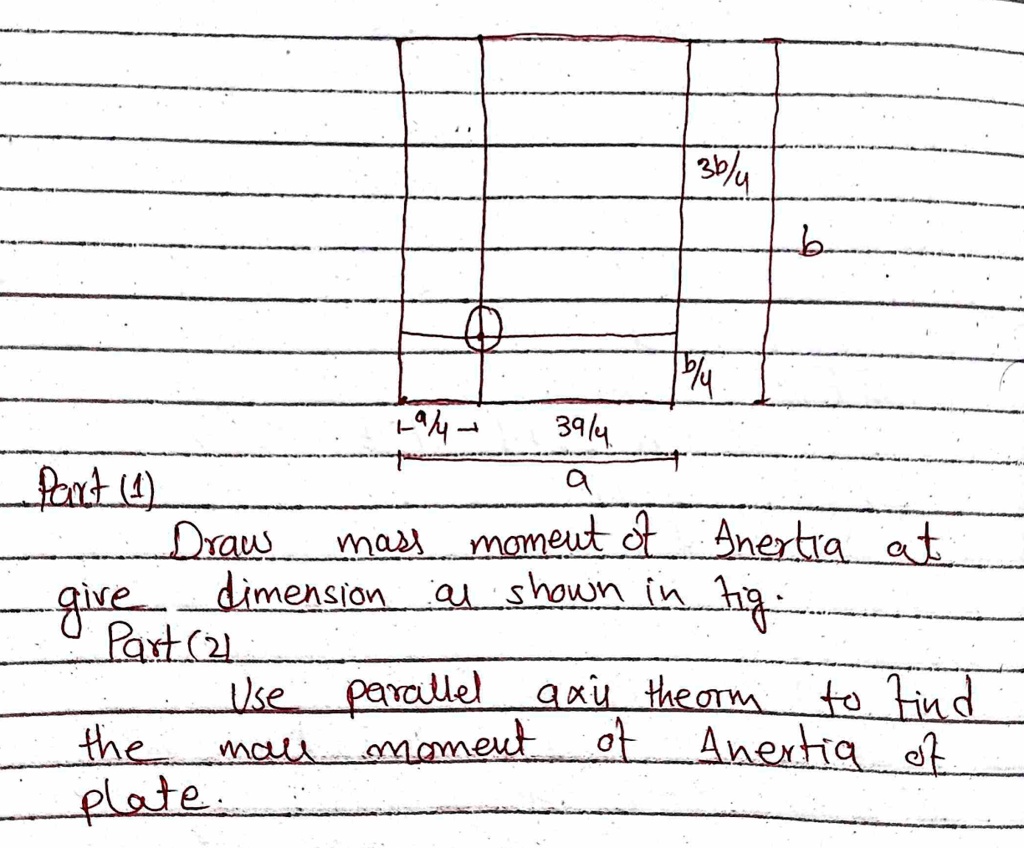 3b/4
b
b/4
a/4
3a/4
a
Part (1)
Draw mass moment of Inertia at
give dimension as shown in fig.
Part (2)
Use parallel axis theorm to find
the mass moment of Inertia of
plate.